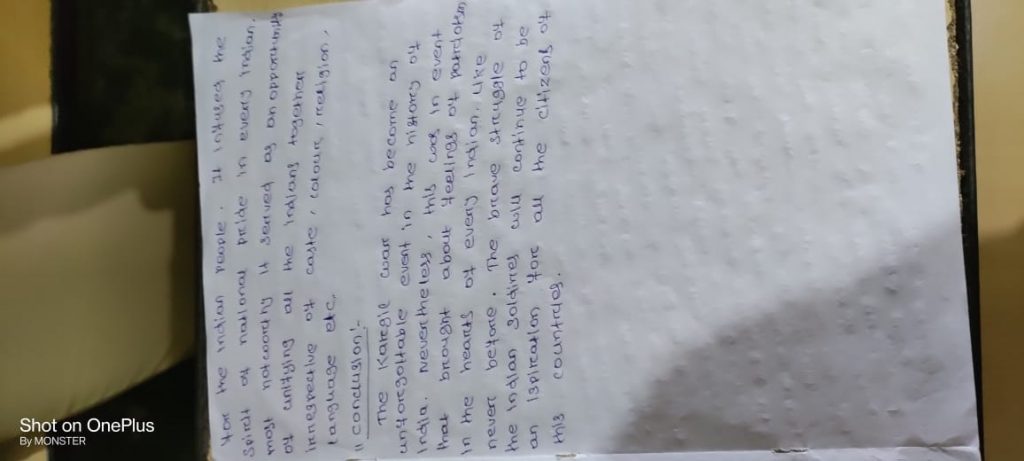 for the indian people. It infused the
spirit of national pride in every indian.
most notworthy it served as an opportunity
of unitying all the indians together
irrespective of caste, colour, religion,
language etc.
"conclusion":-
The Kargil war has become an
unforgottable event in the history of
india. Nevertheless, this was in event
that brought about feelings of patriotism
in the hearts of every indian. Like
never before. The brave struggle of
the indian soldires will continue to be
an ispiration for all the citizens of
this countries.
Shot on OnePlus
By MONSTER